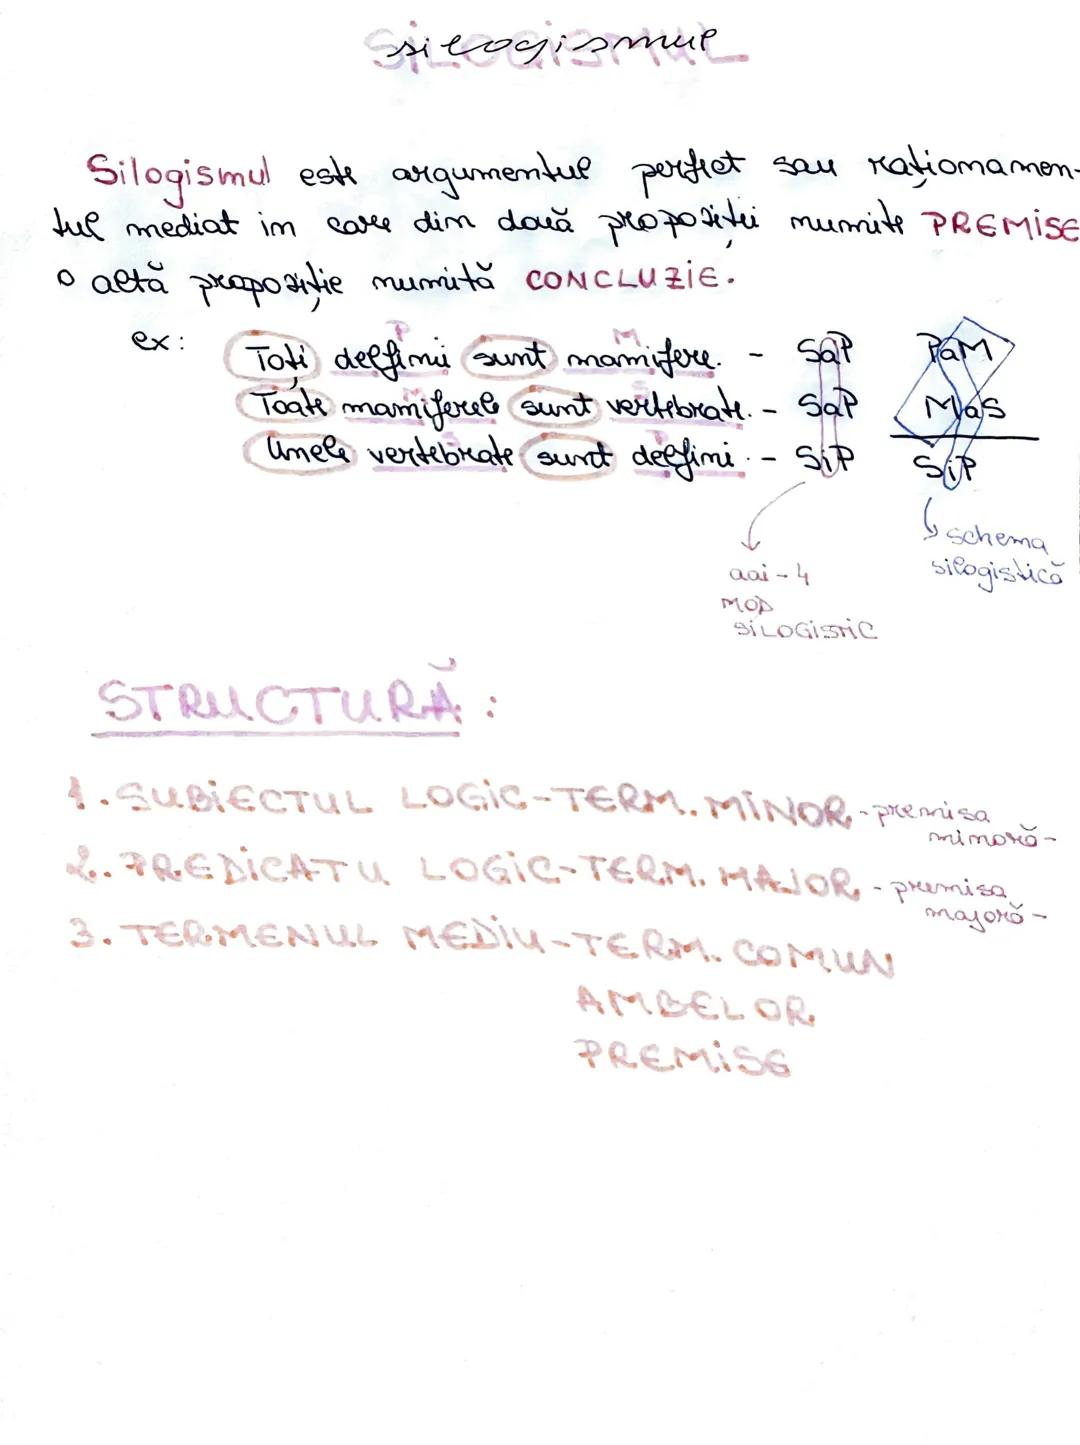 silogismul
Silogismul este argumentul perfect sau raționamen-
tul mediat în care din două propoziții numite PREMISE
o altă propoziție numită CONCLUZIE.
P M
ex: Toți delfinii sunt mamifere. - SaP PaM
M S
Toate mamiferele sunt vertebrate. - SaP MaS
S P
Unele vertebrate sunt delfini. - SiP SiP
schema
silogistică
aai-4
MOD
SILOGISTIC
STRUCTURĂ:
1. SUBIECTUL LOGIC-TERM. MINOR - premisa
minoră-
2. PREDICATU LOGIC-TERM. MAJOR - premisa
majoră-
3. TERMENUL MEDIU-TERM. COMUN
AMBELOR
PREMISE